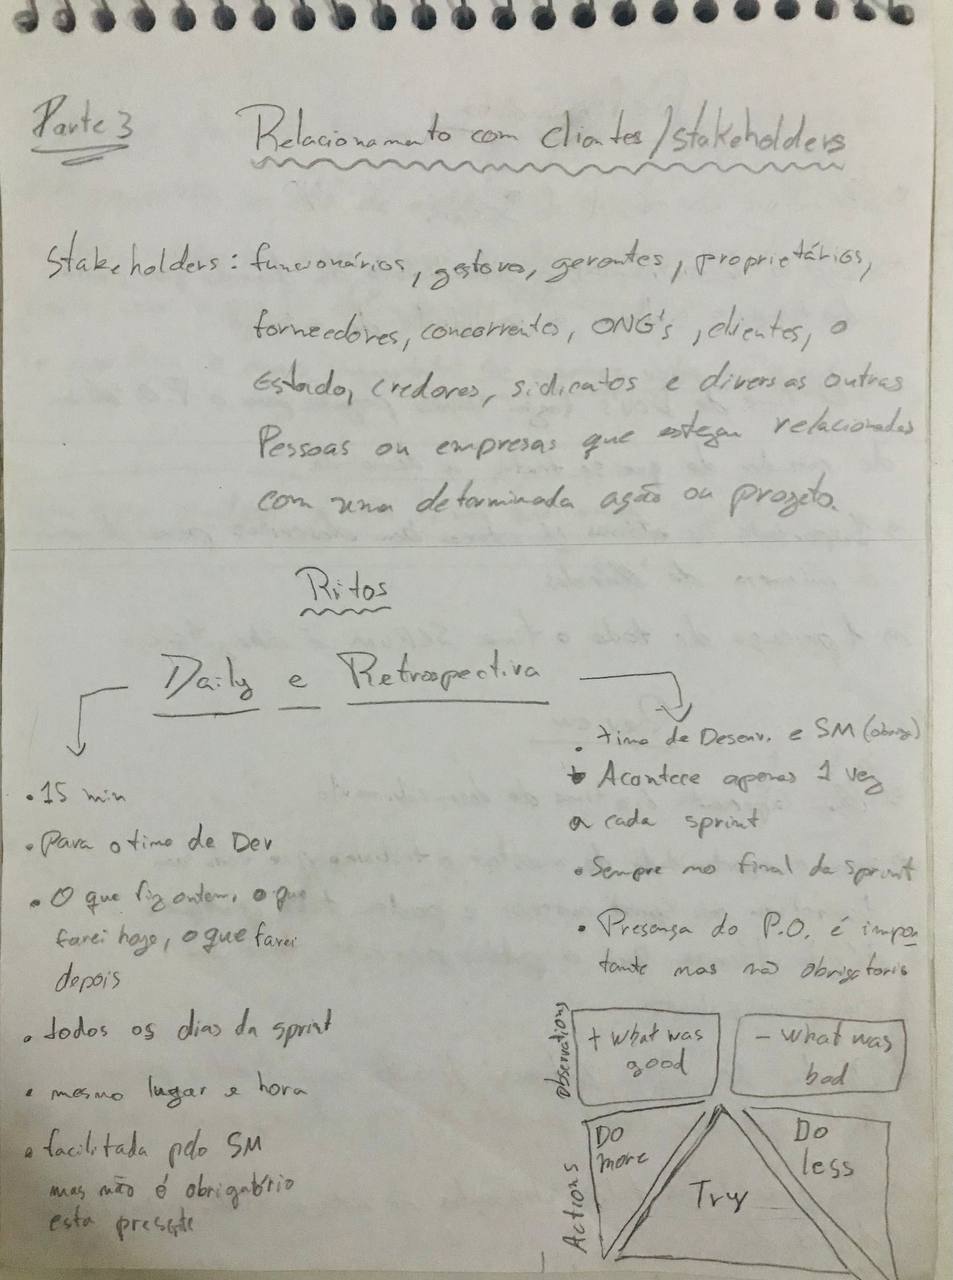 Parte 3
Relacionamento com clientes/stakeholders
Stakeholders: funcionários, gestores, gerentes, proprietários,
fornecedores, concorrentes, ONG's, clientes, o
Estado, credores, sidicatos e diversas outras
Pessoas ou empresas que estejam relacionadas
com uma determinada ação ou projeto.
Ritos
Daily e Retrospectiva
• 15 min
• Para o time de Dev
• O que fiz ontem, o que
farei hoje, o que farei
depois
• todos os dias da sprint
• mesmo lugar e hora
• facilitada pelo SM
mas não é obrigatório
esta presente
• time de Desenv. e SM (obrig)
• Acontece apenas 1 vez
a cada sprint
• Sempre no final da sprint
• Presença do P.O. é impor
tante mas não obrigatoris
Observations
+ what was
good
- what was
bad
Actions
Do
more
Try
Do
less